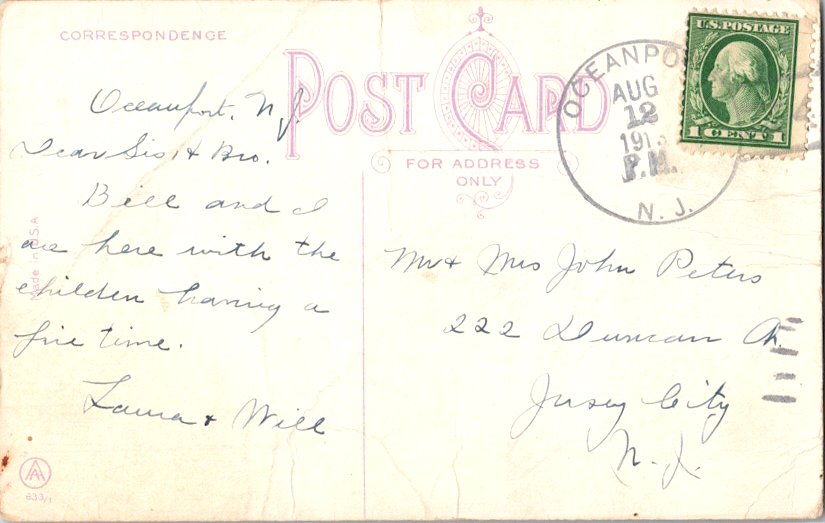 CORRESPONDENCE
POST CARD
FOR ADDRESS
ONLY
OCEANPO
AUG
12
191
P.M.
N. J.
U.S. POSTAGE
1 CENT 1
Oceanport, N.J.
Dear Sis, & Bro.
Bill and I
are here with the
children having a
fine time.
Laura & Will
Mr & Mrs John Peters
222 Duncan Av.
Jersey City
N. J.
Made in U.S.A
AA
633/1